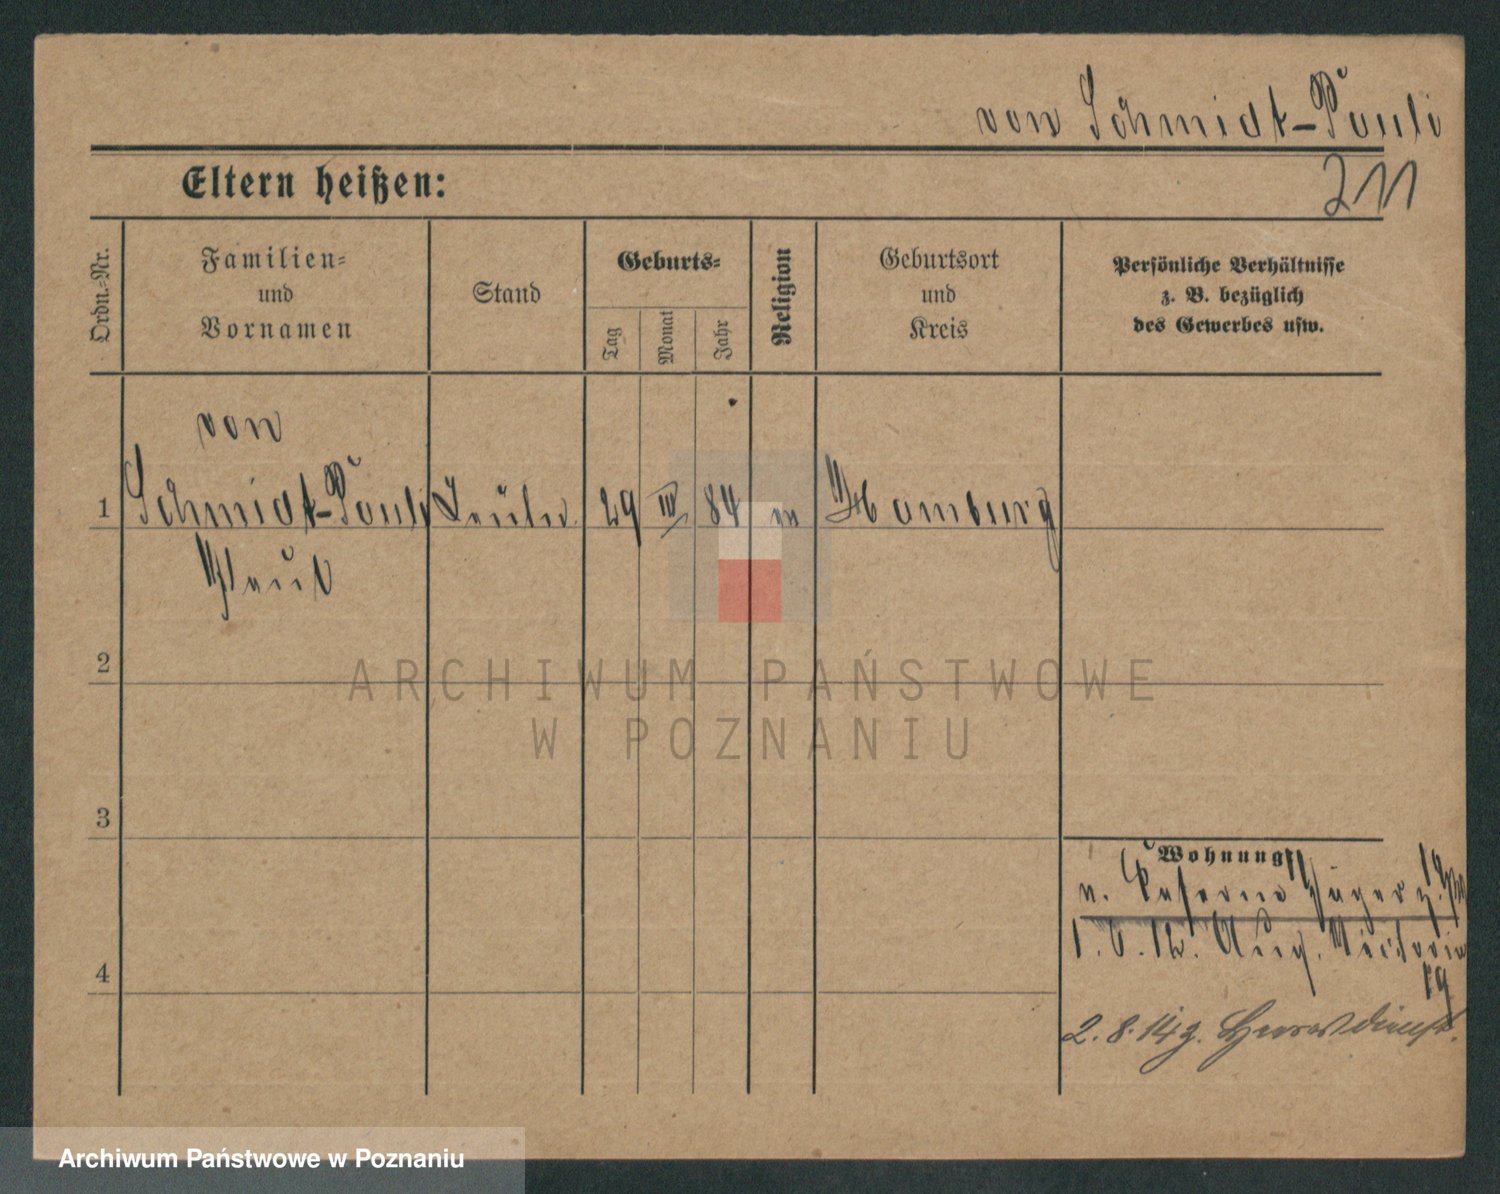 von Schmidt-Pauli
211
Eltern heißen:
Ordn.-Nr.
Familien-
und
Vornamen
Stand
Geburts-
Tag
Monat
Jahr
Religion
Geburtsort
und
Kreis
Persönliche Verhältnisse
z. B. bezüglich
des Gewerbes usw.
von
1 Schmidt-Pauli Leutn. 29 III 84 Hamburg
2
3
4
Wohnung
v. Kaserne Jäger z. Pf.
1.6.12. Aug. Victoria
19
2.8.14 z. Heeresdienst.
ARCHIWUM PAŃSTWOWE
W POZNANIU
Archiwum Państwowe w Poznaniu